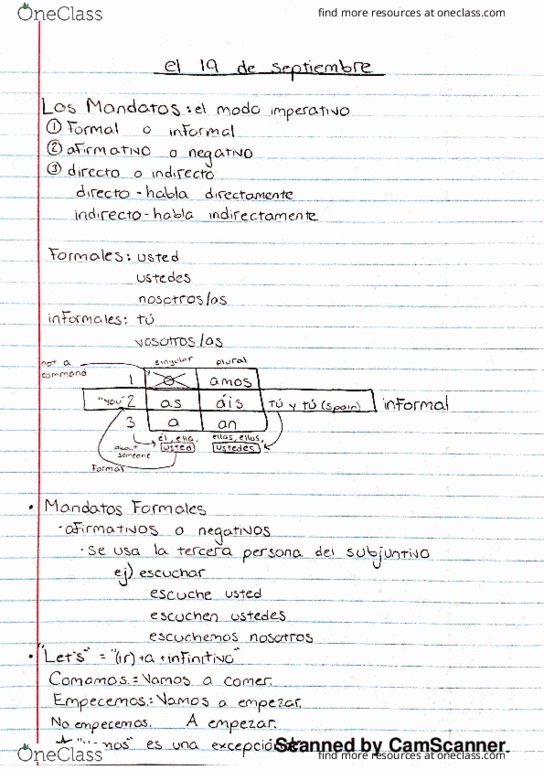 OneClass
find more resources at oneclass.com
el 19 de septiembre
Los Mandatos: el modo imperativo
① Formal o informal
② afirmativo o negativo
③ directo o indirecto
directo - habla directamente
indirecto - habla indirectamente
Formales: usted
ustedes
nosotros/as
informales: tú
vosotros/as
not a command
singular plural
1 o amos
"you" 2 as áis tú y tú (spain) informal
3 a an
él, ella, usted
ellos, ellas, ustedes
about someone
Formal
• Mandatos Formales
· afirmativos o negativos
· se usa la tercera persona del subjuntivo
ej) escuchar
escuche usted
escuchen ustedes
escuchemos nosotros
• "Let's" = "(ir)+a+infinitivo"
Comamos = Vamos a comer.
Empecemos = Vamos a empezar.
No empecemos. A empezar.
es una excepción
Scanned by CamScanner
OneClass
find more resources at oneclass.com